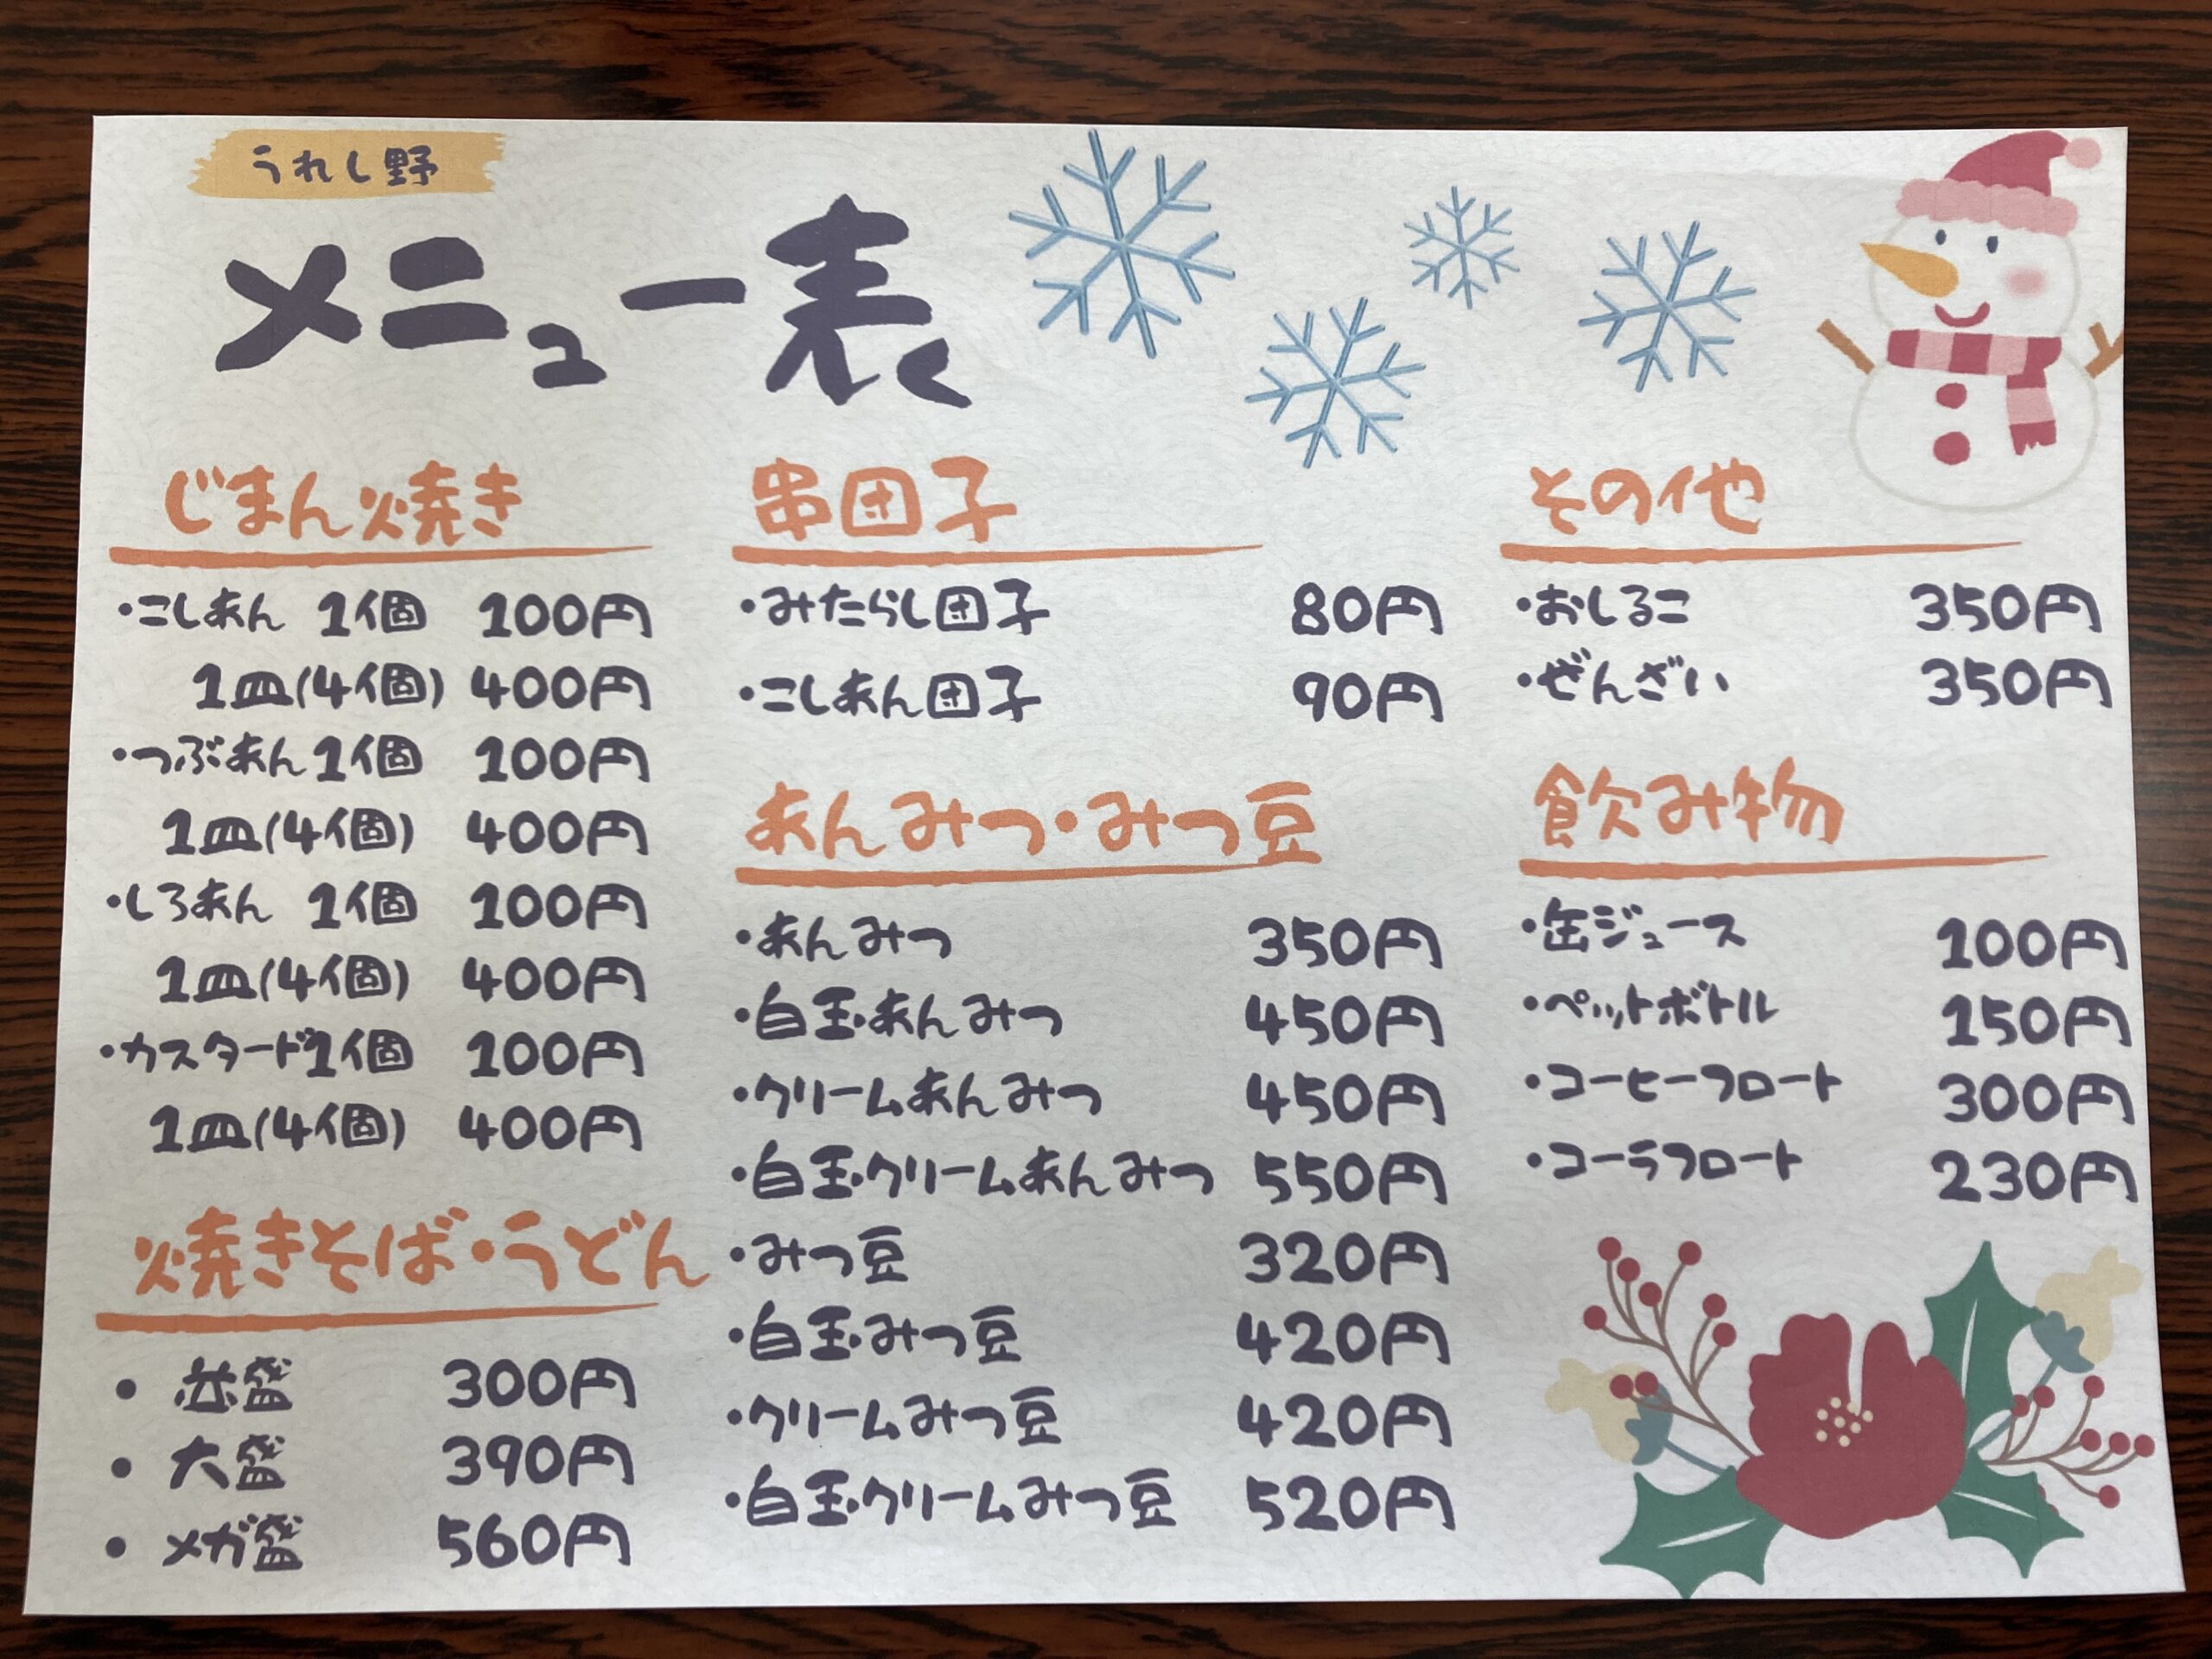 うれし野
メニュー表
じまん焼き
・こしあん 1個 100円
1皿(4個) 400円
・つぶあん 1個 100円
1皿(4個) 400円
・しろあん 1個 100円
1皿(4個) 400円
・カスタード 1個 100円
1皿(4個) 400円
焼きそば・うどん
・並盛 300円
・大盛 390円
・メガ盛 560円
串団子
・みたらし団子 80円
・こしあん団子 90円
あんみつ・みつ豆
・あんみつ 350円
・白玉あんみつ 450円
・クリームあんみつ 450円
・白玉クリームあんみつ 550円
・みつ豆 320円
・白玉みつ豆 420円
・クリームみつ豆 420円
・白玉クリームみつ豆 520円
その他
・おしるこ 350円
・ぜんざい 350円
飲み物
・缶ジュース 100円
・ペットボトル 150円
・コーヒーフロート 300円
・コーラフロート 230円